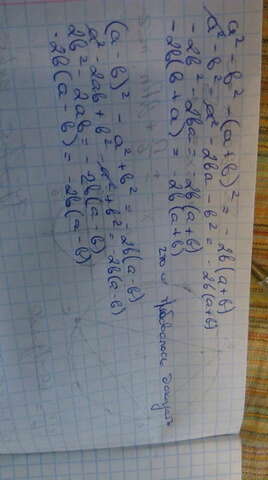 a² - b² - (a+b)² = -2b(a+b)
a² - b² - a² - 2ba - b² = -2b(a+b)
-2b² - 2ba = -2b(a+b)
-2b(b+a) = -2b(a+b)
что и требовалось
(a-b)² - a² + b² = -2b(a-b)
a² - 2ab + b² - a² + b² = -2b(a-b)
2b² - 2ab = -2b(a-b)
-2b(a-b) = -2b(a-b)